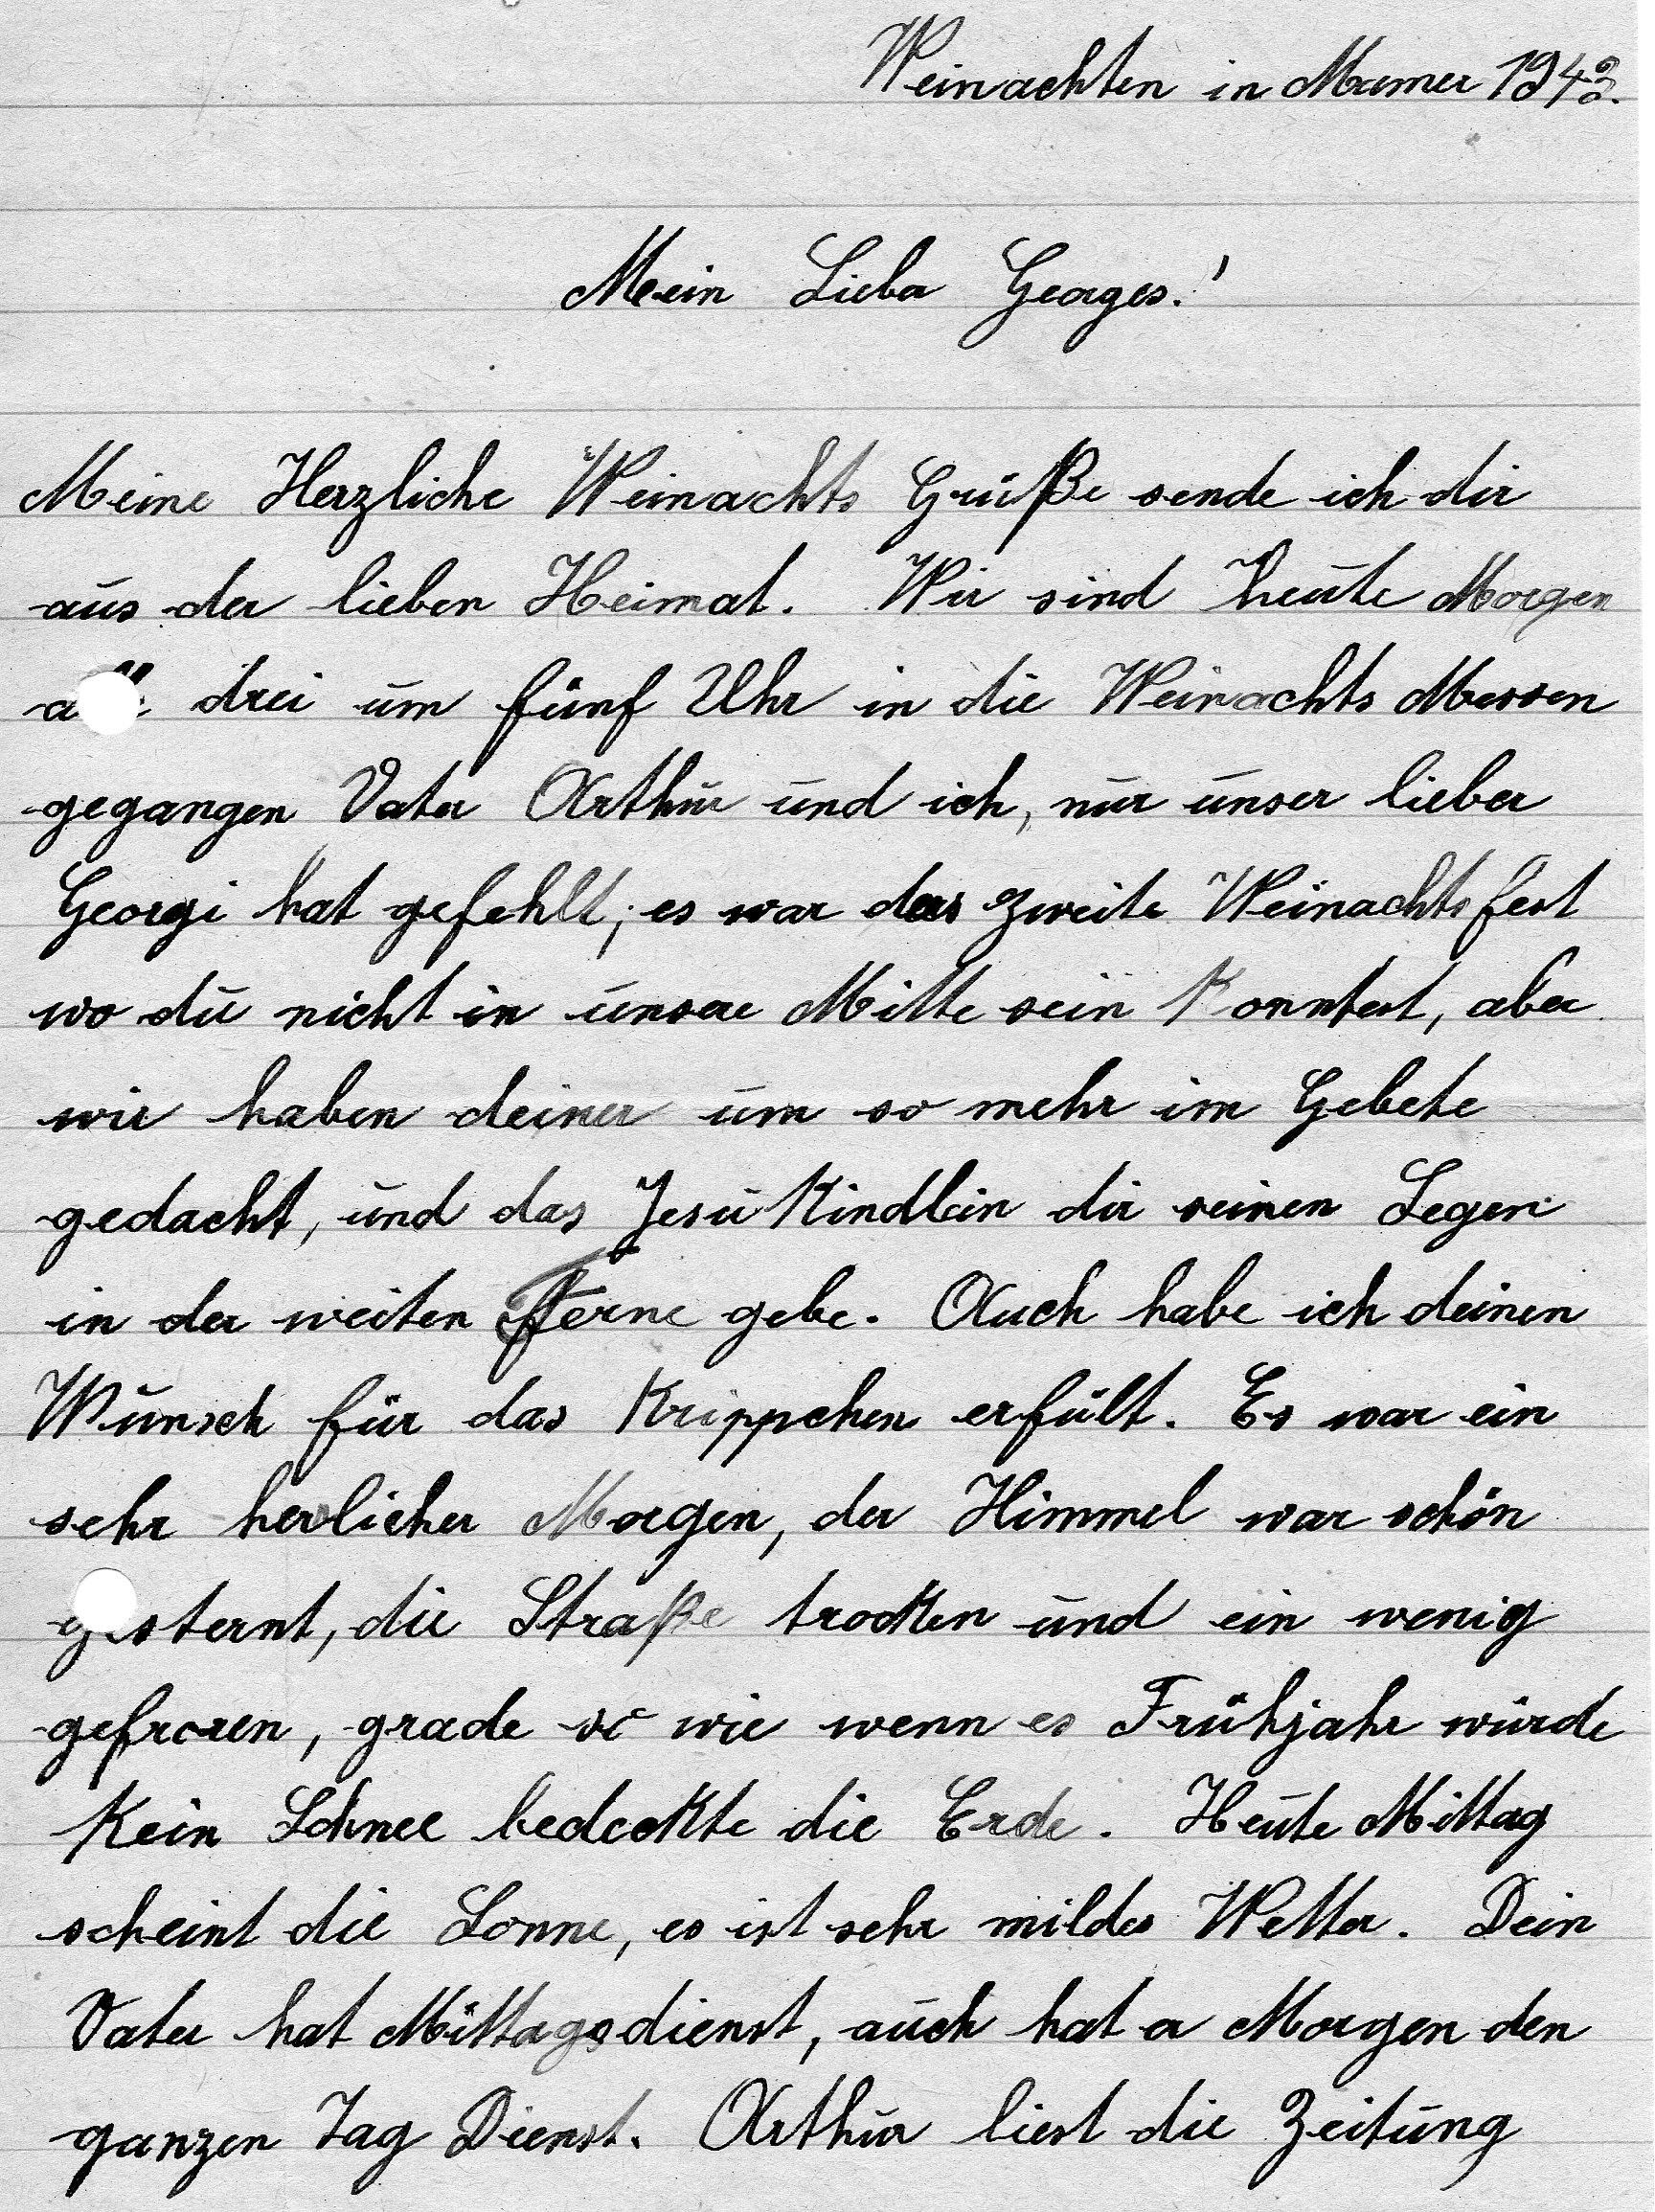 Weinachten in Mamer 1942.
Mein Lieber Georges!
Meine Herzliche Weinachts Grüße sende ich dir
aus der lieben Heimat. Wir sind heute Morgen
drei um fünf Uhr in die Weinachts Messen
gegangen Vater Arthur und ich, nur unser lieber
Georgi hat gefehlt; es war das zweite Weinachtsfest
wo du nicht in unsere Mitte sein konntest, aber
wir haben deiner um so mehr im Gebete
gedacht, und das Jesu Kindlein dir seinen Segen
in der weiten Ferne gebe. Auch habe ich deinen
Wunsch für das Krippchen erfült. Es war ein
sehr herlicher Morgen, der Himmel war schön
gesternt, die Straße trocken und ein wenig
gefroren, grade so wie wenn es Frühjahr würde
Kein Schnee bedeckte die Erde. Heute Mittag
scheint die Sonne, es ist sehr mildes Wetter. Dein
Vater hat Mittagsdienst, auch hat er Morgen den
ganzen Tag Dienst. Arthur liest die Zeitung